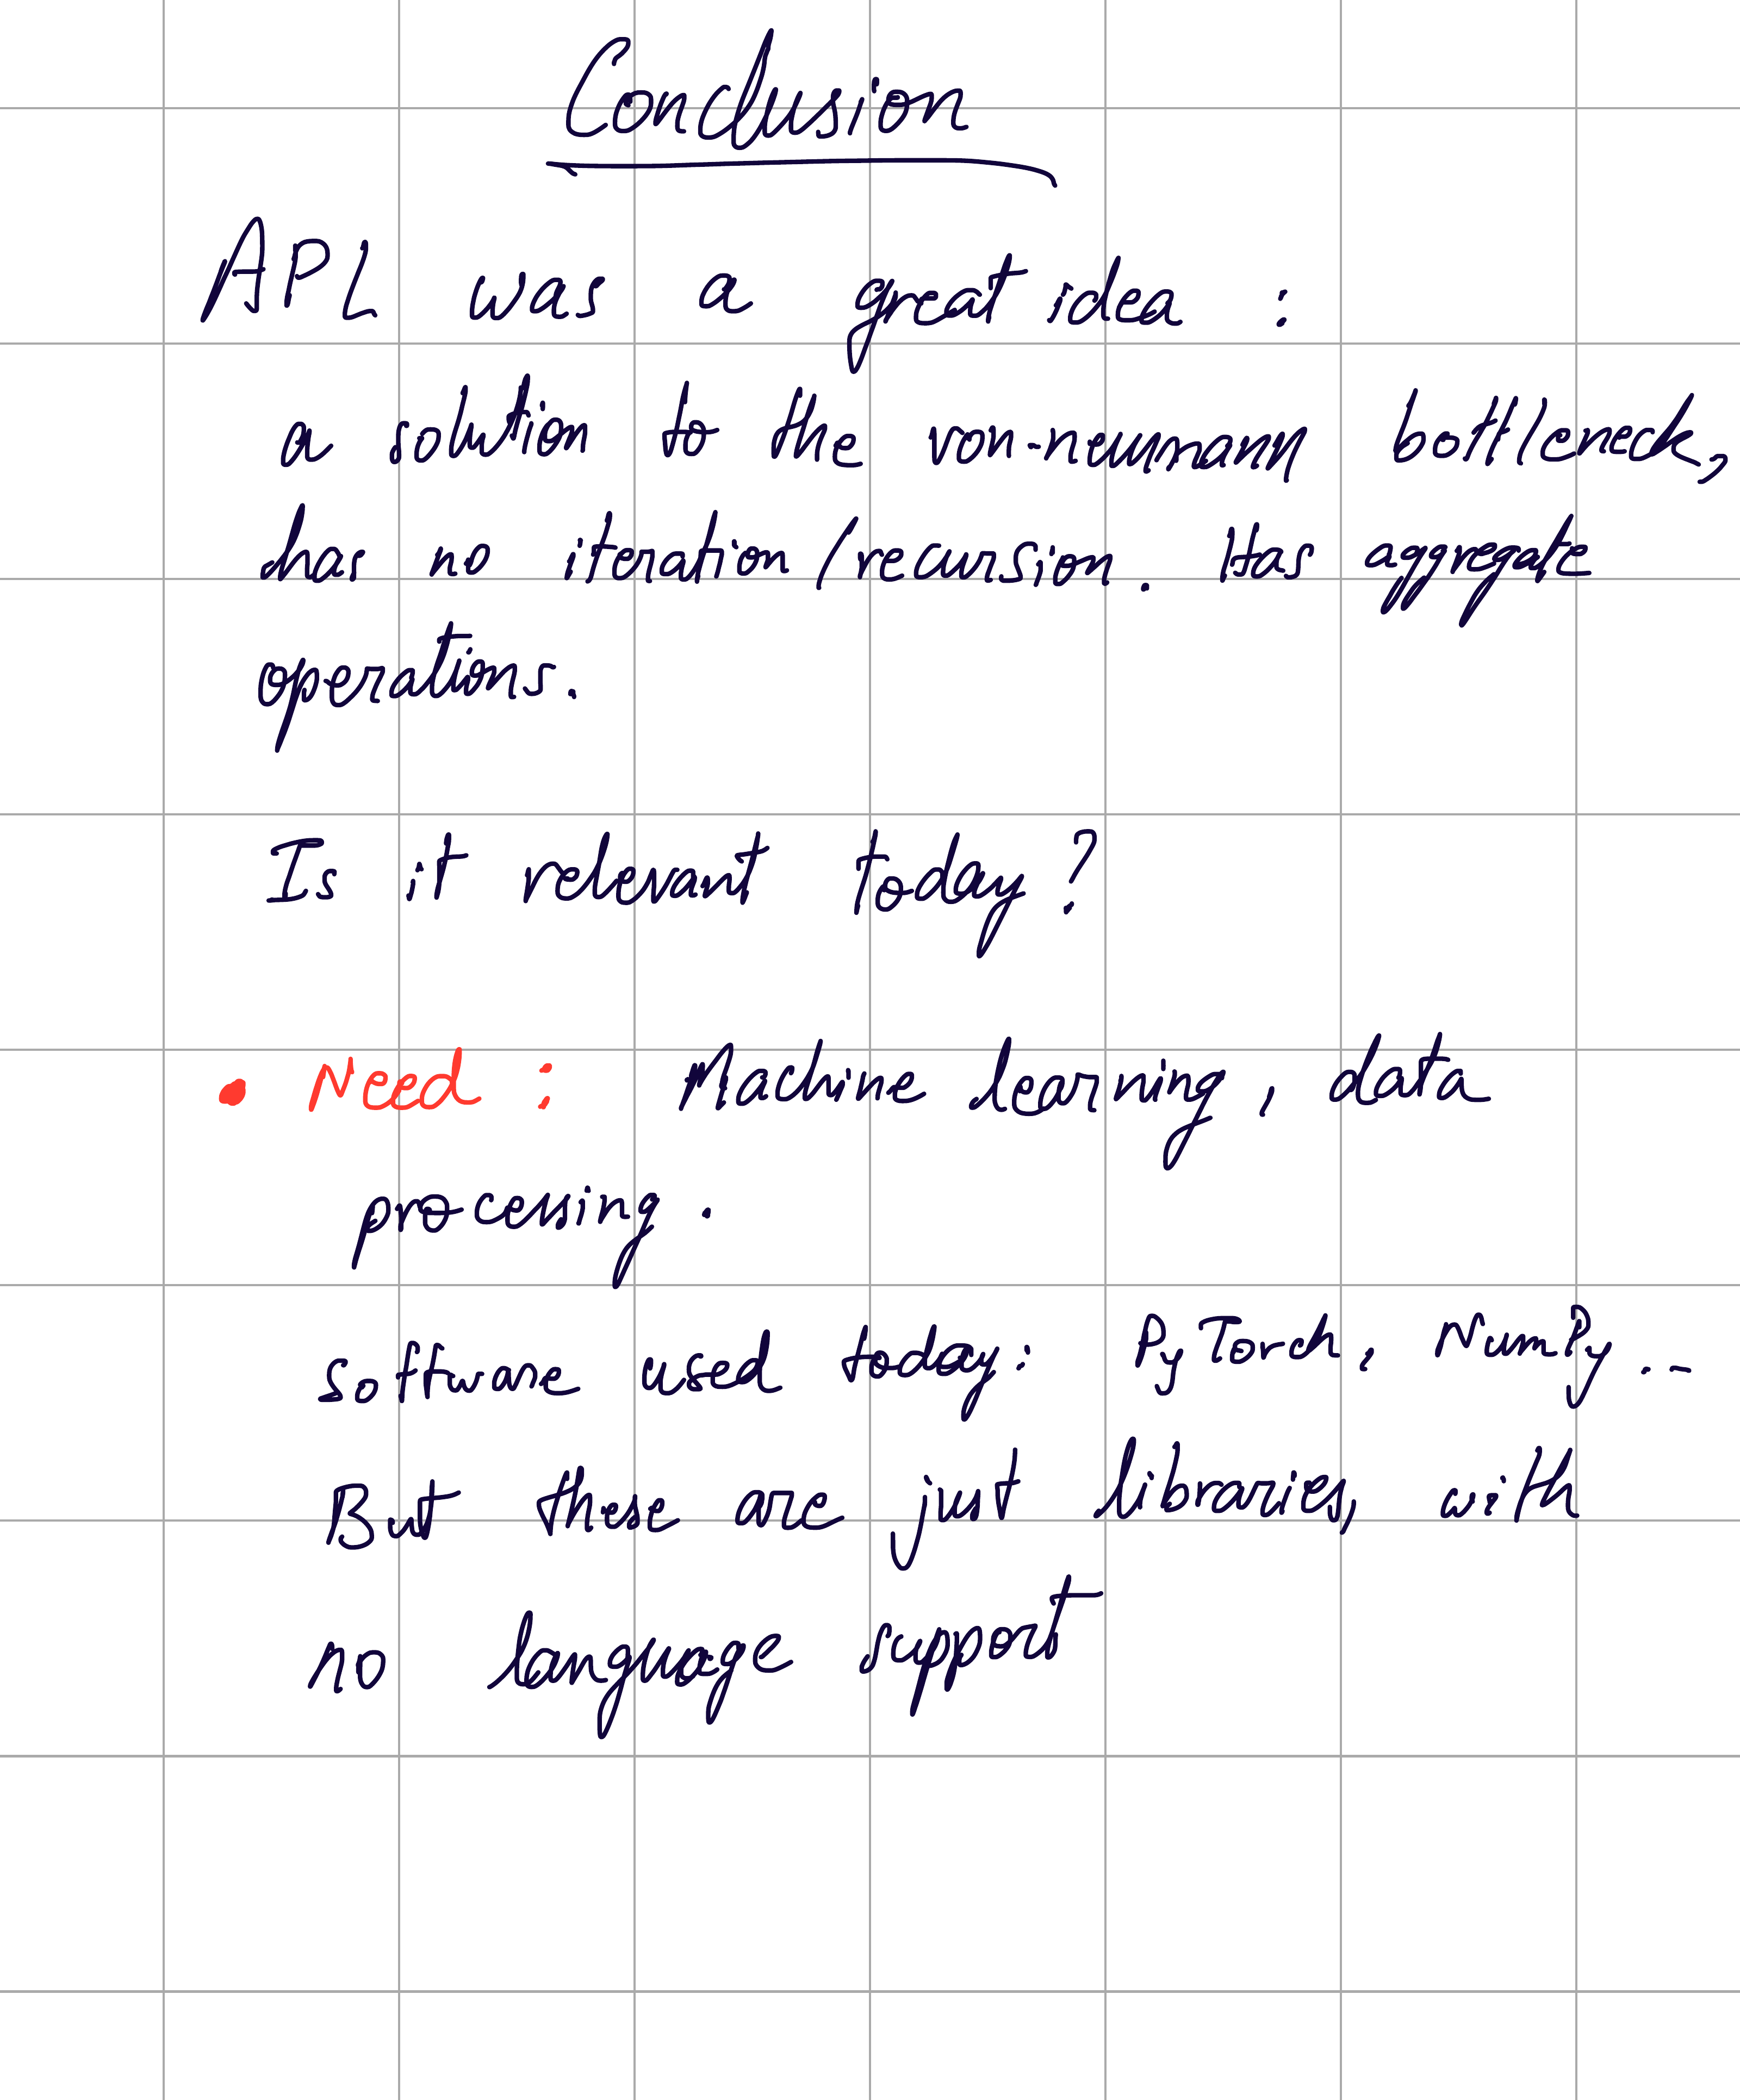 Conclusion
APL was a great idea :
a solution to the von-neumann bottleneck,
has no iteration/recursion. Has aggregate
operations.
Is it relevant today?
• Need : Machine learning, data
processing.
software used today: PyTorch, NumPy...
But these are just libraries, with
no language support